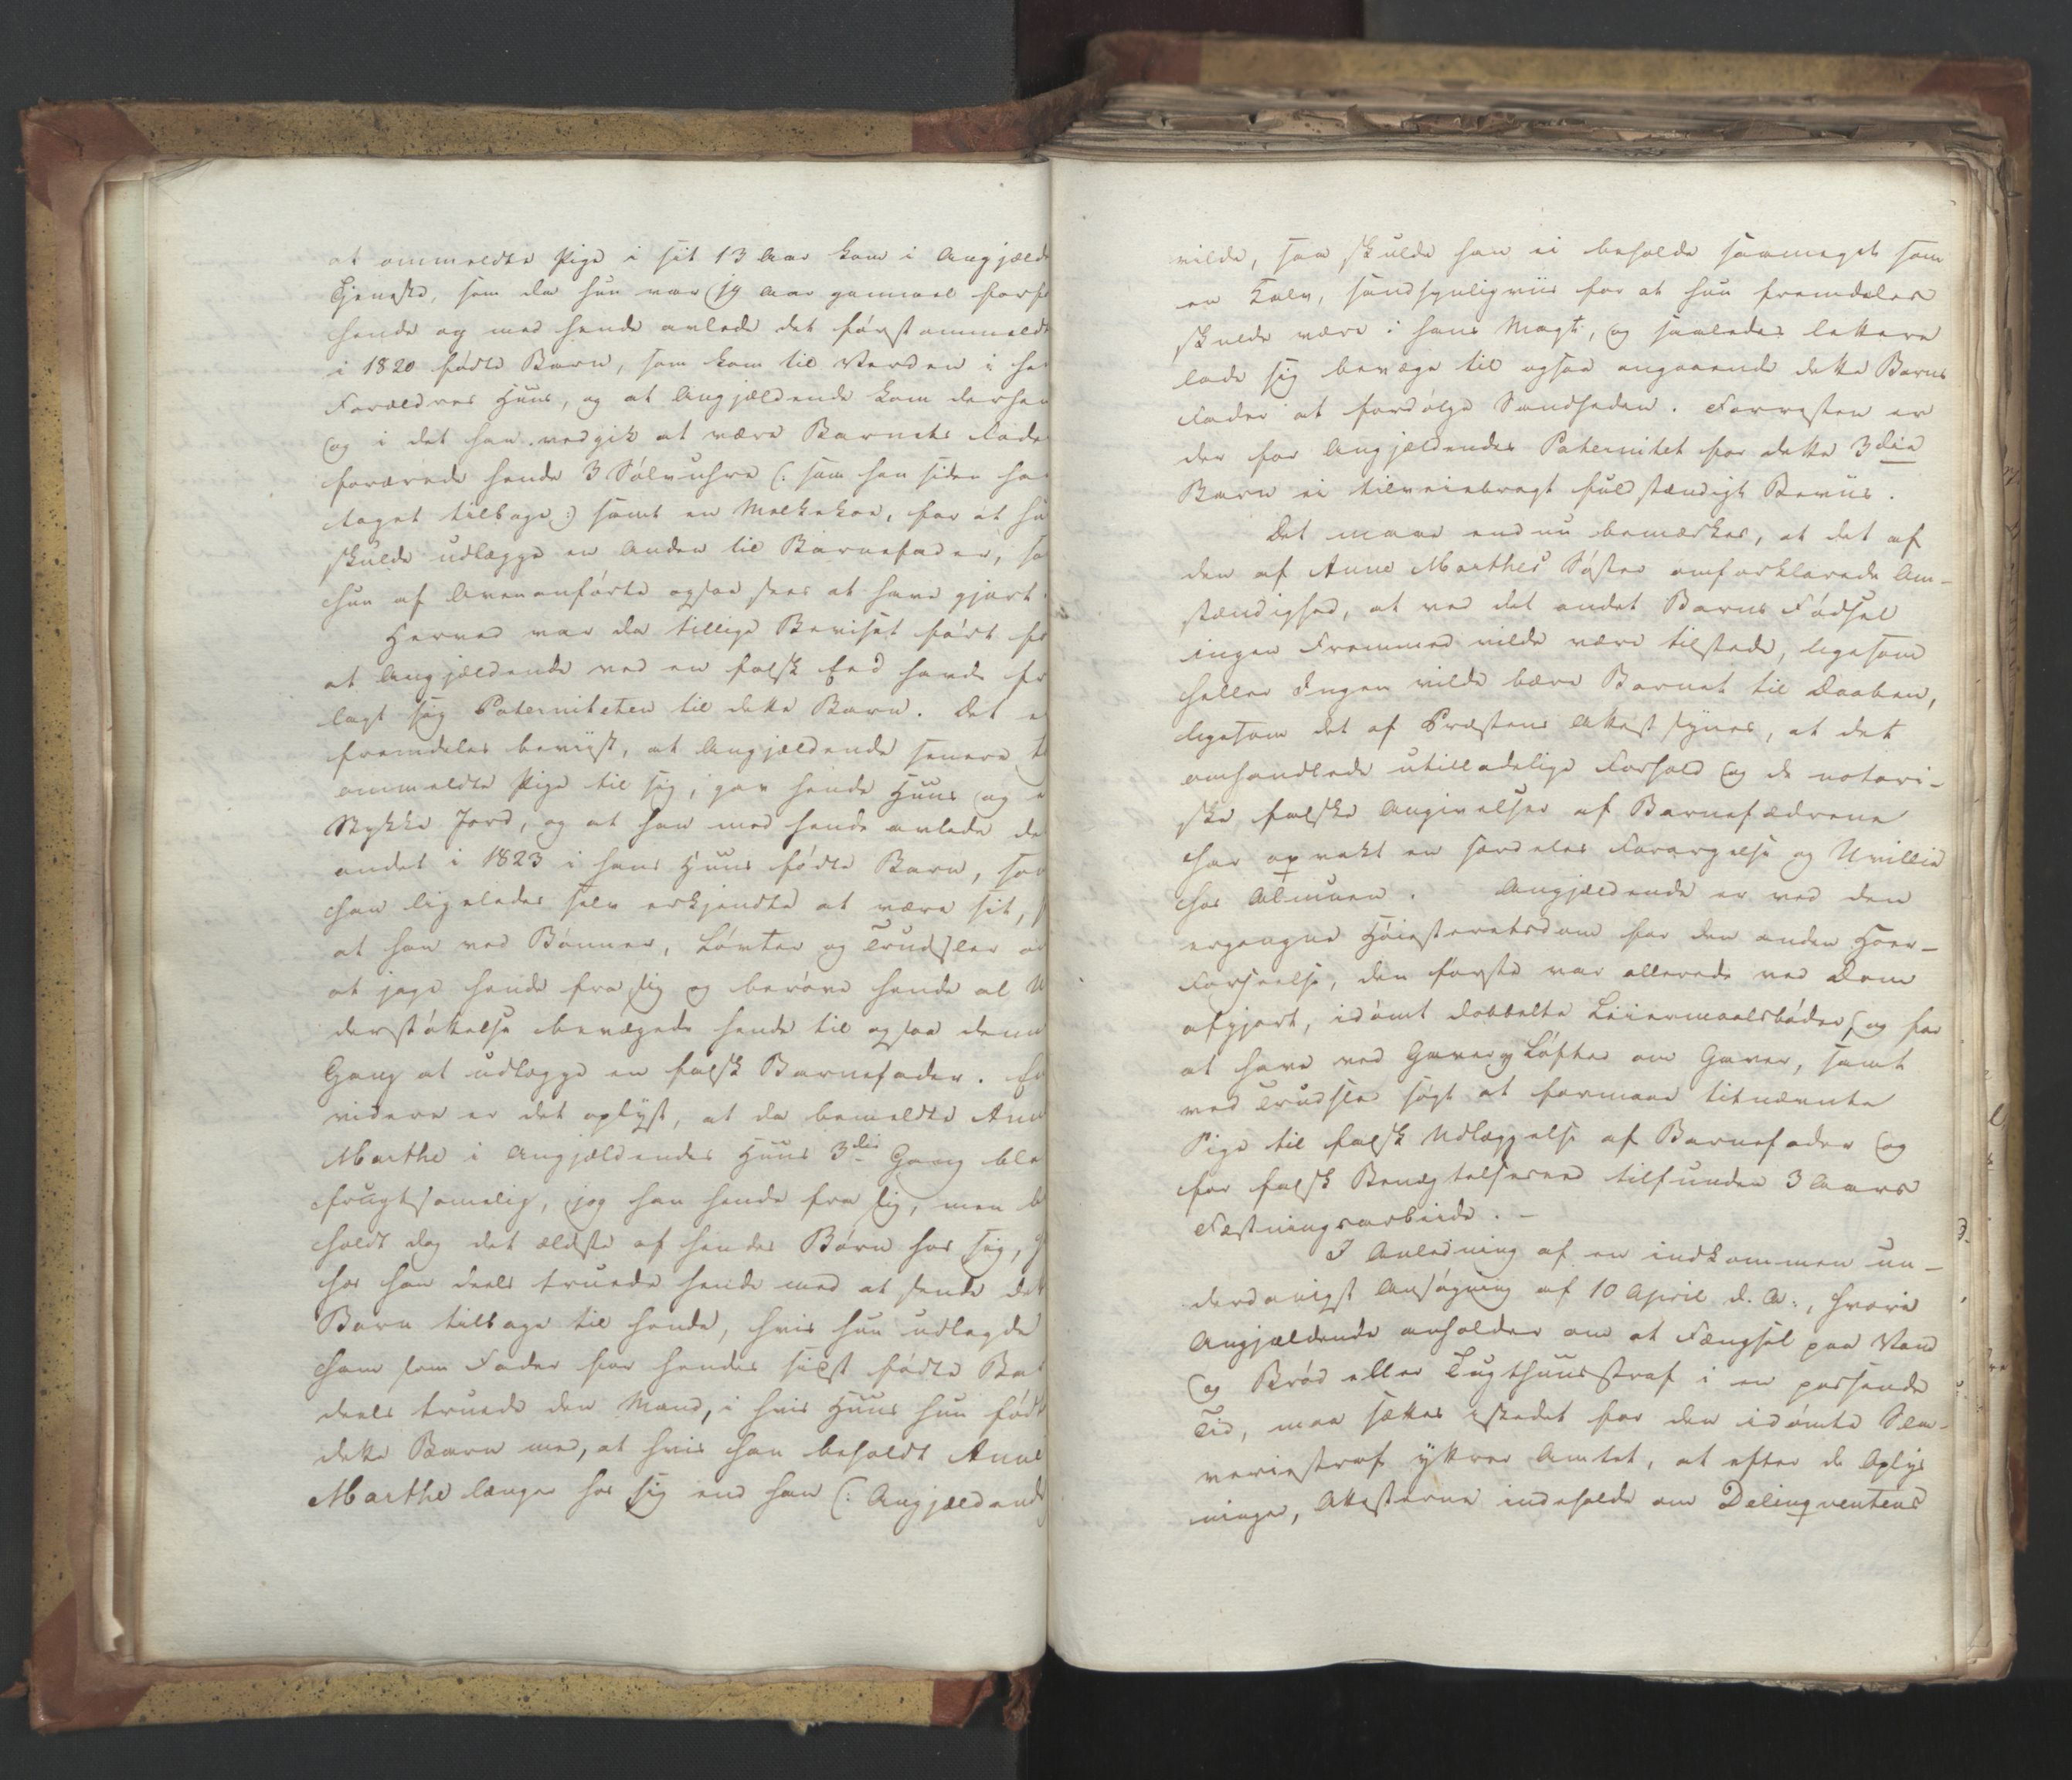 at ommeldte Pige i sit 13 Aar kom i Angjæld
Tjeneste, som da hun var 19 Aar gammel forf
hende og med hende avlede det førstommeldt
i 1820 fødte Barn, som kom til Verden i he
Forældres Huus, og at Angjældende kom derhen
og i det han vedgik at være Barnets Fade
forærede hende 3 Sølvuhre (: som han siden ha
taget tilbage :) samt en Melkekoe, for at hu
skulde udlægge en Anden til Barnefader, so
hun af Ovenanførte ogsaa sees at have gjort.
Herved var da tillige Beviset ført fo
at Angjældende ved en falsk Eed havde fra
lagt sig Paterniteten til dette Barn. Det e
fremdeles beviist, at Angjældende senere t
ommeldte Pige til sig, gav hende Huus og e
Stykke Jord, og at han med hende avlede de
andet i 1823 i hans Huus fødte Barn, som
han ligeledes selv erkjendte at være sit,
at han ved Bønner, Løvter og Trudsler om
at jage hende fra sig og berøve hende al U
derstøttelse bevægede hende til ogsaa denn
Gang at udlægge en falsk Barnefader. En
videre er det oplyst, at da bemeldte Ann
Marthe i Angjældendes Huus 3die Gang ble
frugtsommelig, jog han hende fra sig, men b
holdt dog det ældste af hendes Børn hos sig,
hos han deels truede hende med at sende det
Barn tilbage til hende, hvis hun udlagde
ham som Fader for hendes sidst fødte Bar
deels truede den Mand, i hvis Huus hun født
dette Barn med, at hvis han beholdt Anne
Marthe længer hos sig end han (: Angjældende
vilde, saa skulde han ei beholde saameget som
en Kalv, sandsynligviis for at hun fremdeles
skulde være i hans Magt, og saaledes lettere
lade sig bevæge til ogsaa angaaende dette Barns
Fader at fordølge Sandheden. Forresten er
der for Angjældendes Paternitet for dette 3die
Barn ei tilveiebragt fuldstændigt Beviis.
Det maae endnu bemærkes, at det af
den af Anne Marthes Søster omforklarede Om-
stændighed, at ved det andet Barns Fødsel
ingen Fremmed vilde være tilstede, ligesom
heller Ingen vilde bære Barnet til Daaben,
ligesom det af Præstens Attest synes, at det
omhandlede utilladelige Forhold og de notori-
ske falske Angivelser af Barnefædrene
har opvakt en særdeles Forargelse og Uvillie
hos Almuen. Angjældende er ved den
ergangne Høiesteretsdom for den anden Hoer-
Forseelse, den første var allerede ved Dom
afgjort, idømt dobbelte Leiermaalsbøder, og for
at have ved Gaver og Løfter om Gaver, samt
ved Trudsler søgt at formaae titnævnte
Pige til falsk Udlæggelse af Barnefader og
for falsk Benægtelseseed tilfunden 3 Aars
Fæstningsarbeide. -
I Anledning af en indkommen un-
derdanigst Ansøgning af 10 April d. A., hvori
Angjældende anholder om at Fængsel paa Vand
og Brød eller Tugthuusstraf i en passende
Tid, maa sættes istedet for den idømte Sla-
veriestraf yttrer Amtet, at efter de Oplys
ninger, Attesterne indeholde om Delinqventens